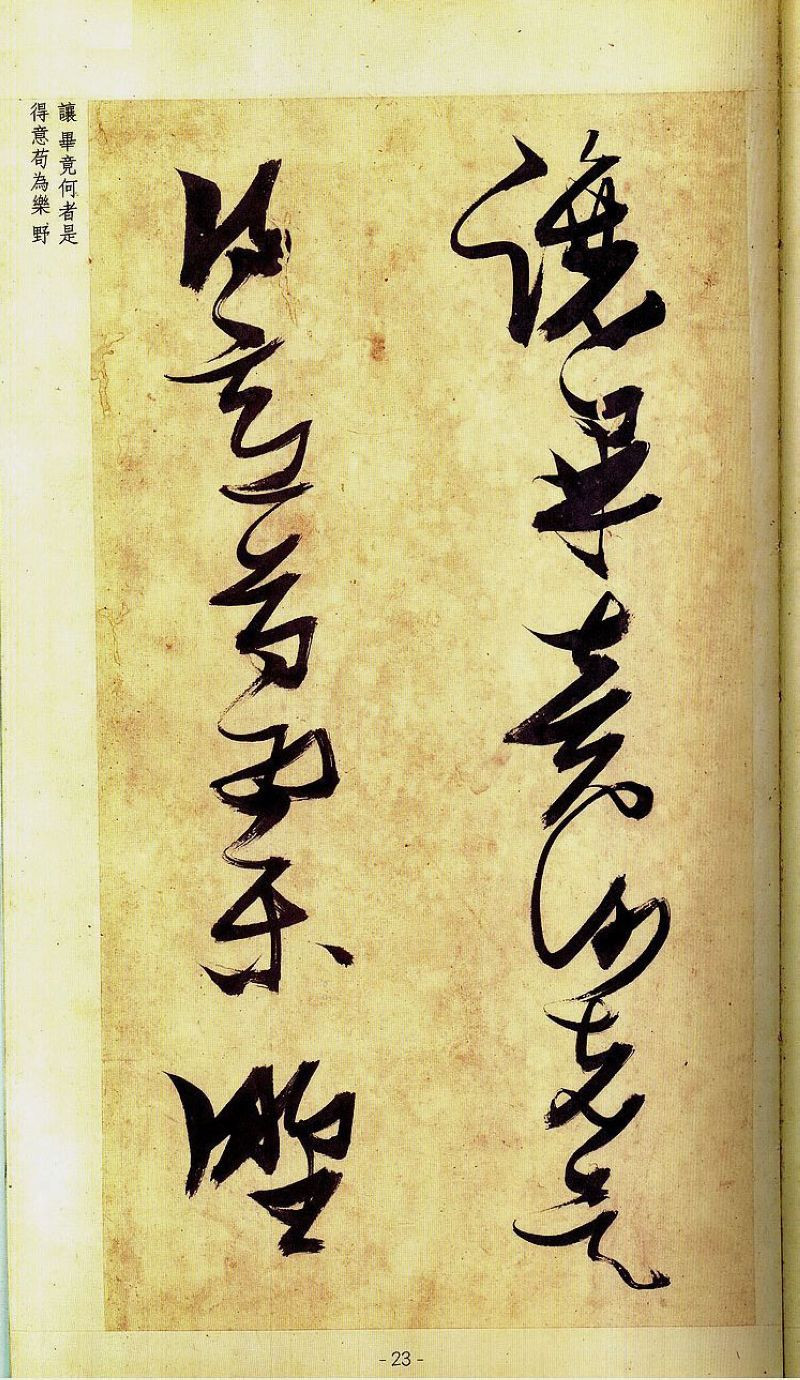 讓畢竟何者是
得意苟為樂野
讓 畢竟何者是
得意苟為樂 野
- 23 -